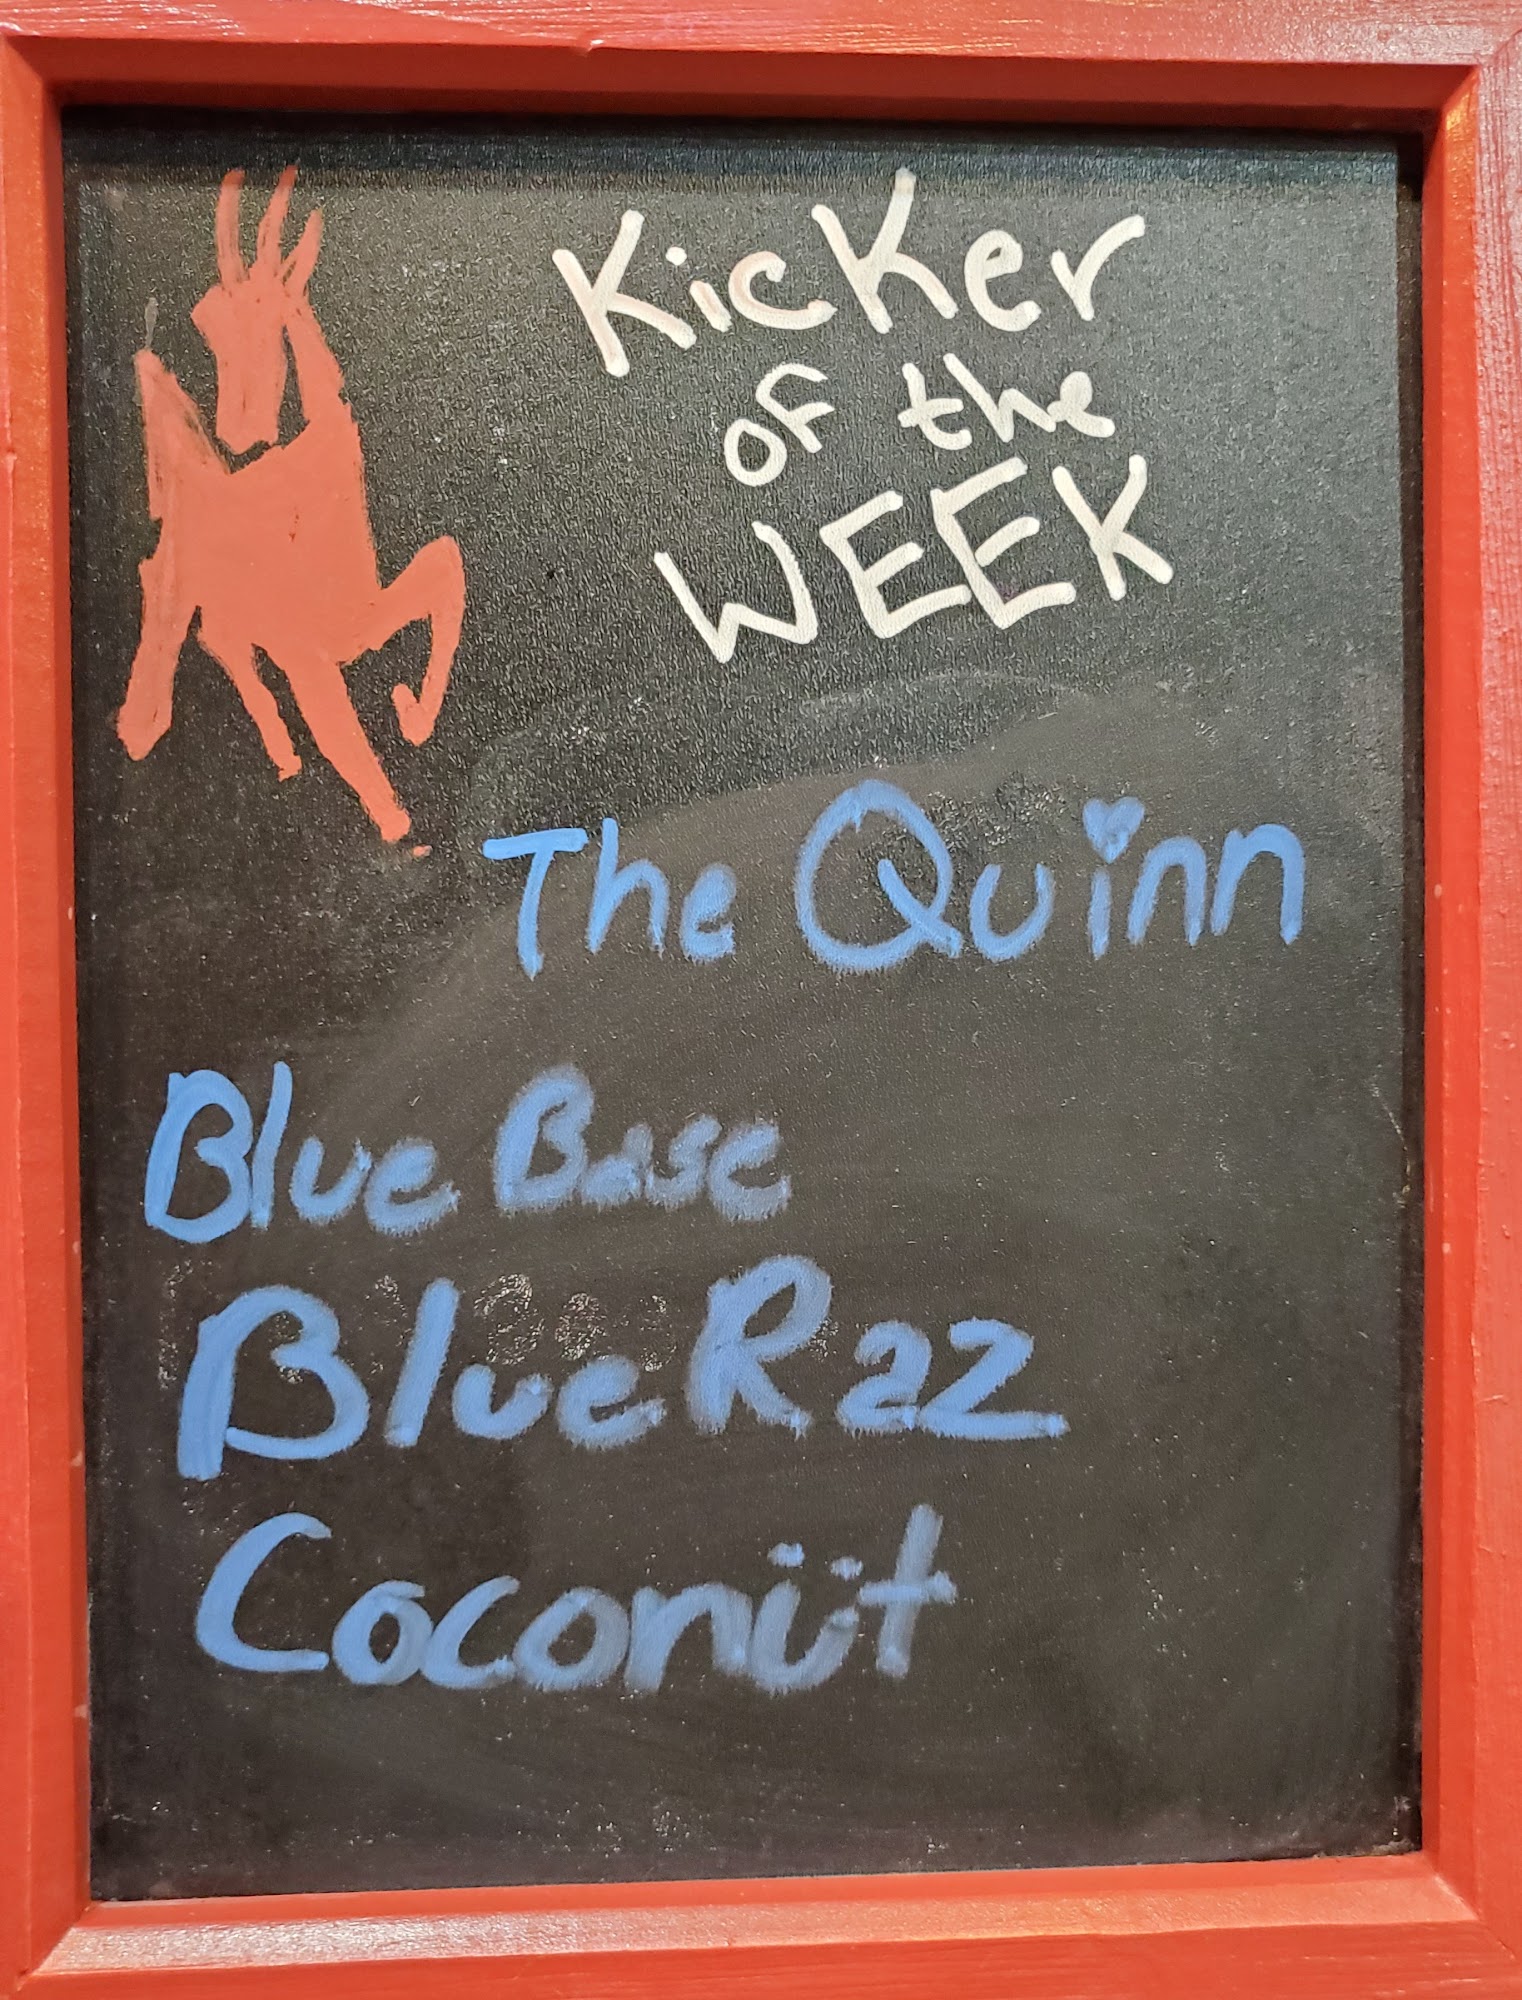 Kicker
of the
WEEK
The Quinn
Blue Base
Blue Raz
Coconüt